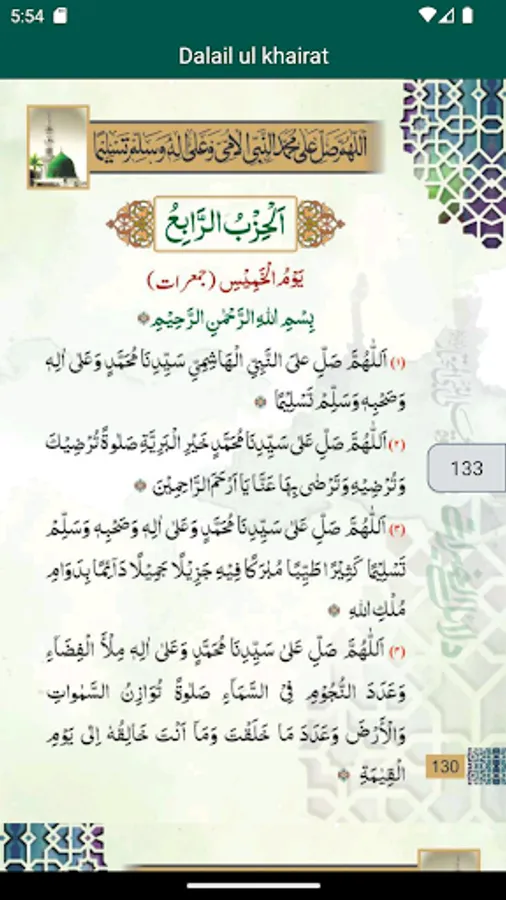 5:54
Dalail ul khairat
اَللّٰهُمَّ صَلِّ عَلٰى مُحَمَّدٍ النَّبِيِّ الْاُمِّيِّ وَعَلٰى اٰلِهٖ وَسَلِّمْ تَسْلِيْمًا
اَلْحِزْبُ الرَّابِعُ
يَوْمُ الْخَمِيْسِ (جمعرات)
بِسْمِ اللهِ الرَّحْمٰنِ الرَّحِيْمِ
(۱) اَللّٰهُمَّ صَلِّ عَلَى النَّبِيِّ الْهَاشِمِيِّ سَيِّدِنَا مُحَمَّدٍ وَعَلٰى اٰلِهٖ
وَصَحْبِهٖ وَسَلِّمْ تَسْلِيْمًا
(۲) اَللّٰهُمَّ صَلِّ عَلٰى سَيِّدِنَا مُحَمَّدٍ خَيْرِ الْبَرِيَّةِ صَلٰوةً تُرْضِيْكَ
وَتُرْضِيْهِ وَتَرْضٰى بِهَا عَنَّا يَا اَرْحَمَ الرَّاحِمِيْنَ
133
(۳) اَللّٰهُمَّ صَلِّ عَلٰى سَيِّدِنَا مُحَمَّدٍ وَعَلٰى اٰلِهٖ وَصَحْبِهٖ وَسَلِّمْ
تَسْلِيْمًا كَثِيْرًا طَيِّبًا مُبٰرَكًا فِيْهِ جَزِيْلًا جَمِيْلًا دَآئِمًا بِدَوَامِ
مُلْكِ اللهِ
(۴) اَللّٰهُمَّ صَلِّ عَلٰى سَيِّدِنَا مُحَمَّدٍ وَعَلٰى اٰلِهٖ مِلْأَ الْفَضَآءِ
وَعَدَدَ النُّجُوْمِ فِي السَّمَآءِ صَلٰوةً تُوَازِنُ السَّمٰوَاتِ
وَالْاَرْضَ وَعَدَدَ مَا خَلَقْتَ وَمَا اَنْتَ خَالِقُهٗ اِلٰى يَوْمِ
الْقِيٰمَةِ
130